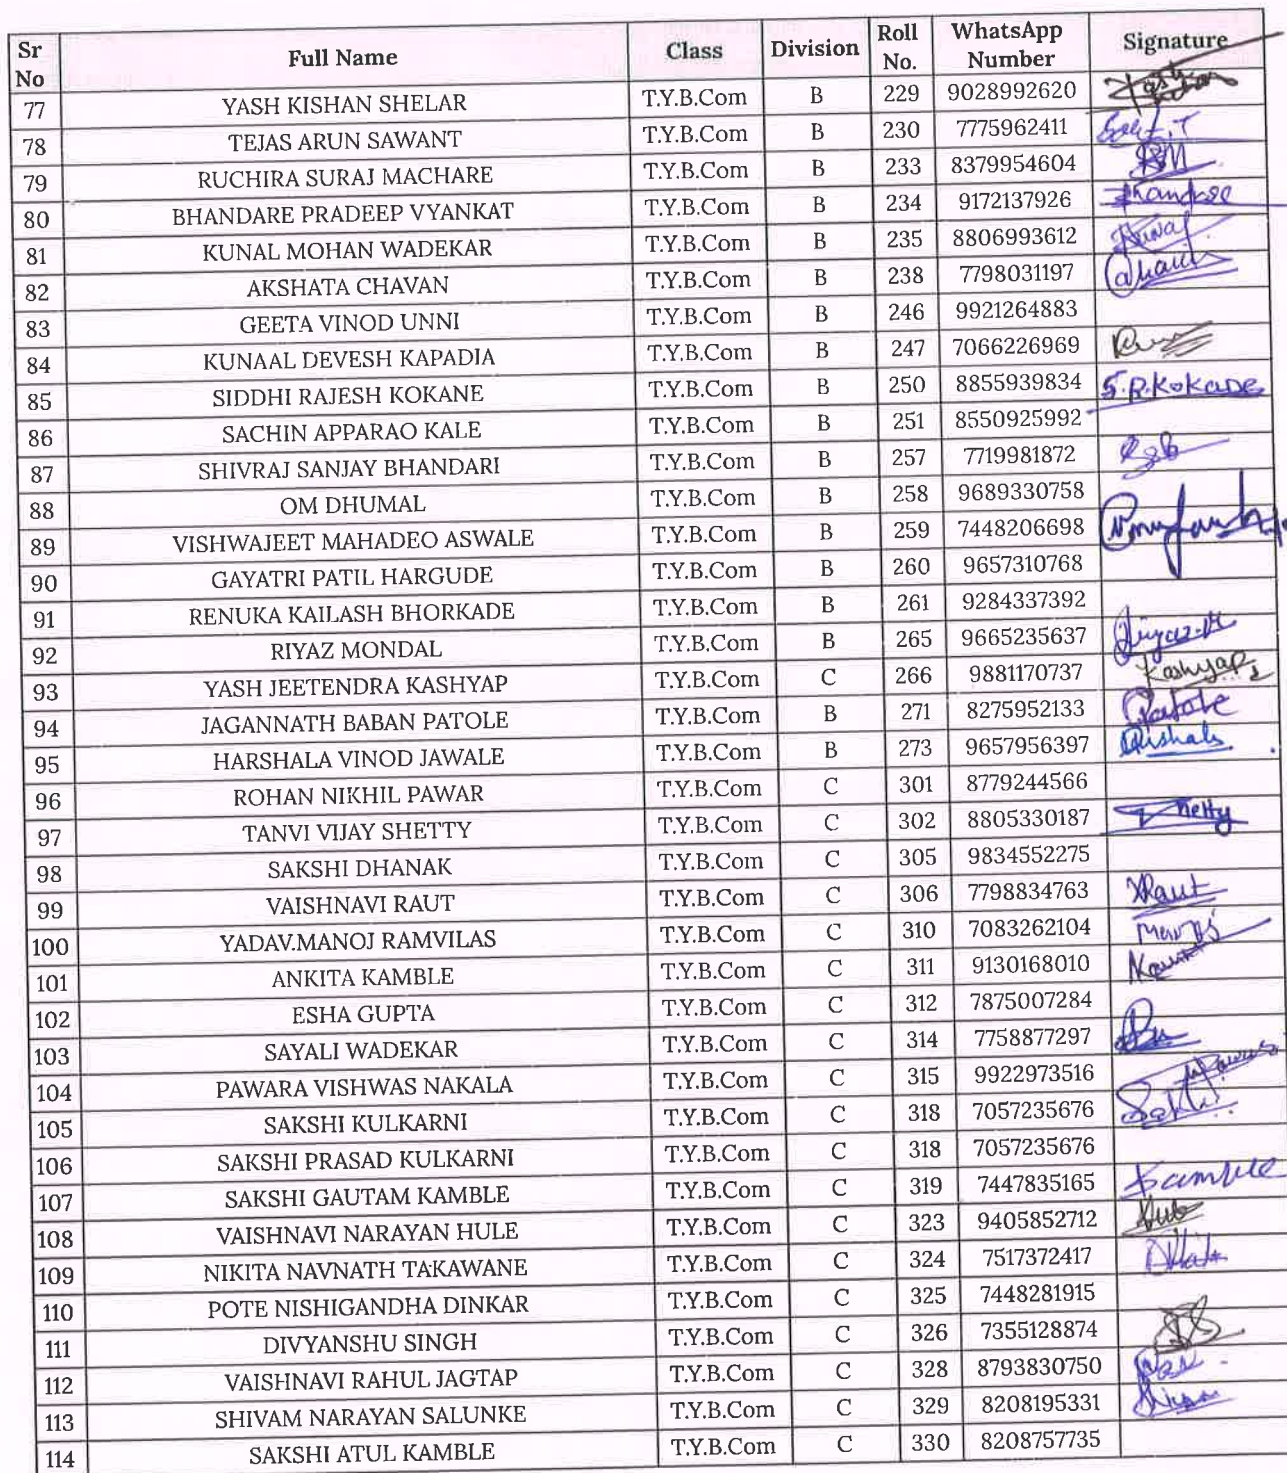 Sr No Full Name Class Division Roll No. WhatsApp Number Signature
77 YASH KISHAN SHELAR T.Y.B.Com B 229 9028992620 Yash
78 TEJAS ARUN SAWANT T.Y.B.Com B 230 7775962411
79 RUCHIRA SURAJ MACHARE T.Y.B.Com B 233 8379954604
80 BHANDARE PRADEEP VYANKAT T.Y.B.Com B 234 9172137926
81 KUNAL MOHAN WADEKAR T.Y.B.Com B 235 8806993612 Kunal
82 AKSHATA CHAVAN T.Y.B.Com B 238 7798031197
83 GEETA VINOD UNNI T.Y.B.Com B 246 9921264883
84 KUNAAL DEVESH KAPADIA T.Y.B.Com B 247 7066226969
85 SIDDHI RAJESH KOKANE T.Y.B.Com B 250 8855939834 S.R.Kokane
86 SACHIN APPARAO KALE T.Y.B.Com B 251 8550925992
87 SHIVRAJ SANJAY BHANDARI T.Y.B.Com B 257 7719981872
88 OM DHUMAL T.Y.B.Com B 258 9689330758
89 VISHWAJEET MAHADEO ASWALE T.Y.B.Com B 259 7448206698
90 GAYATRI PATIL HARGUDE T.Y.B.Com B 260 9657310768
91 RENUKA KAILASH BHORKADE T.Y.B.Com B 261 9284337392
92 RIYAZ MONDAL T.Y.B.Com B 265 9665235637 Riyaz.M
93 YASH JEETENDRA KASHYAP T.Y.B.Com C 266 9881170737 Kashyap
94 JAGANNATH BABAN PATOLE T.Y.B.Com B 271 8275952133 Patole
95 HARSHALA VINOD JAWALE T.Y.B.Com B 273 9657956397
96 ROHAN NIKHIL PAWAR T.Y.B.Com C 301 8779244566
97 TANVI VIJAY SHETTY T.Y.B.Com C 302 8805330187 Shetty
98 SAKSHI DHANAK T.Y.B.Com C 305 9834552275
99 VAISHNAVI RAUT T.Y.B.Com C 306 7798834763 VRaut
100 YADAV.MANOJ RAMVILAS T.Y.B.Com C 310 7083262104 Manoj
101 ANKITA KAMBLE T.Y.B.Com C 311 9130168010
102 ESHA GUPTA T.Y.B.Com C 312 7875007284
103 SAYALI WADEKAR T.Y.B.Com C 314 7758877297
104 PAWARA VISHWAS NAKALA T.Y.B.Com C 315 9922973516
105 SAKSHI KULKARNI T.Y.B.Com C 318 7057235676
106 SAKSHI PRASAD KULKARNI T.Y.B.Com C 318 7057235676
107 SAKSHI GAUTAM KAMBLE T.Y.B.Com C 319 7447835165
108 VAISHNAVI NARAYAN HULE T.Y.B.Com C 323 9405852712
109 NIKITA NAVNATH TAKAWANE T.Y.B.Com C 324 7517372417
110 POTE NISHIGANDHA DINKAR T.Y.B.Com C 325 7448281915
111 DIVYANSHU SINGH T.Y.B.Com C 326 7355128874
112 VAISHNAVI RAHUL JAGTAP T.Y.B.Com C 328 8793830750
113 SHIVAM NARAYAN SALUNKE T.Y.B.Com C 329 8208195331
114 SAKSHI ATUL KAMBLE T.Y.B.Com C 330 8208757735